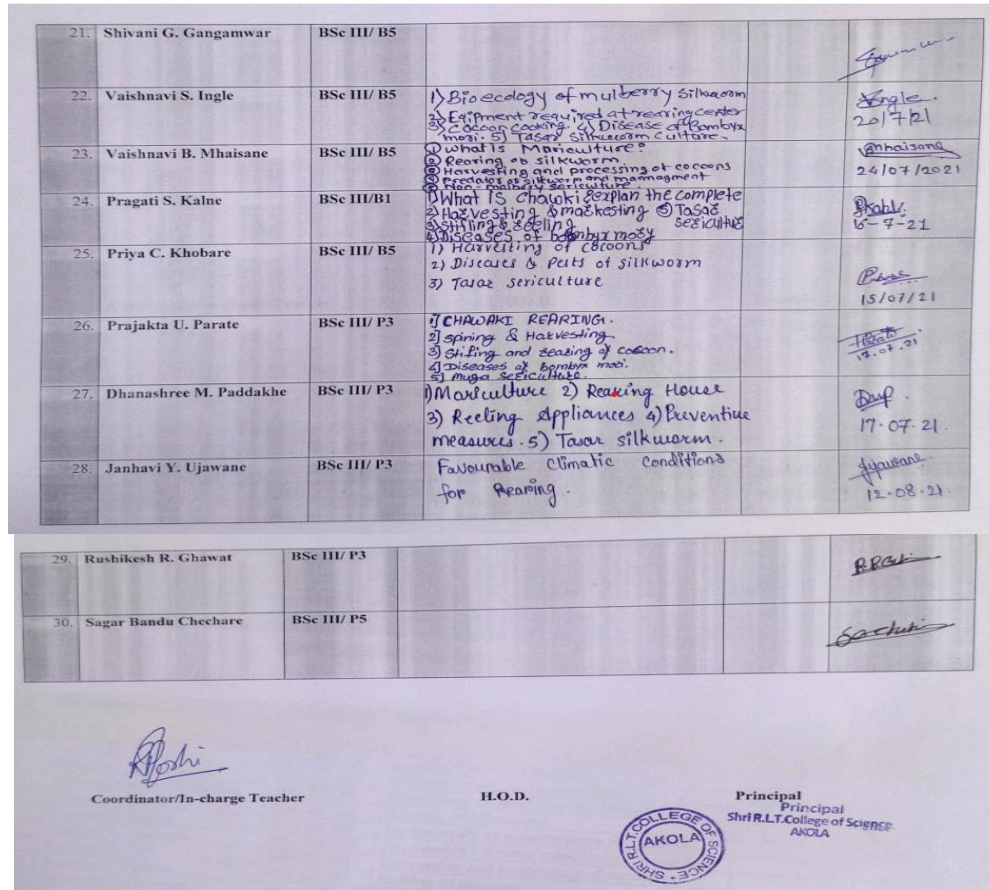 21. Shivani G. Gangamwar BSc III/ B5
22. Vaishnavi S. Ingle BSc III/ B5 1) Bioecology of mulberry silkworm
2) Eqipment required at rearing center
3) Cocoon cooking. 4) Disease of Bombyx
mori. 5) Tasar silkworm culture.
Ingle.
20/7/21
23. Vaishnavi B. Mhaisane BSc III/ B5 ① What is Mariculture?
② Rearing of silkworm
③ Harvesting and processing of cocoons
④ Predator of silkworm and manmagment
⑤ Non-malbery sericulture
Vmhaisane
24/07/2021
24. Pragati S. Kalne BSc III/B1 1) What is chawki explan the complete
2) Harvesting & markesting ⑤ Tasar
3) Stifling & reeling sericulture
4) Diseases of bombyx mory
16-7-21
25. Priya C. Khobare BSc III/ B5 1) Harvesting of cocoons
2) Diseases & Pests of silkworm
3) Tasar sericulture
15/07/21
26. Prajakta U. Parate BSc III/ P3 1] CHAWAKI REARING.
2] Spining & Harvesting.
3) Stifing and rearing of cocoon.
4] Diseases of bombyx mori.
5] Muga sericulture.
17.07.21
27. Dhanashree M. Paddakhe BSc III/ P3 1) Moriculture 2) Rearing House
3) Reeling Appliances 4) Preventive
measures. 5) Tasar silkworm.
17.07.21.
28. Janhavi Y. Ujawane BSc III/ P3 Favourable Climatic Conditions
for Rearing.
Ujawane
12.08.21.
29. Rushikesh R. Ghawat BSc III/ P3
30. Sagar Bandu Chechare BSc III/ P5
Coordinator/In-charge Teacher H.O.D. Principal
Principal
Shri R.L.T. College of Science
AKOLA
SHRI R.L.T. COLLEGE OF SCIENCE
AKOLA